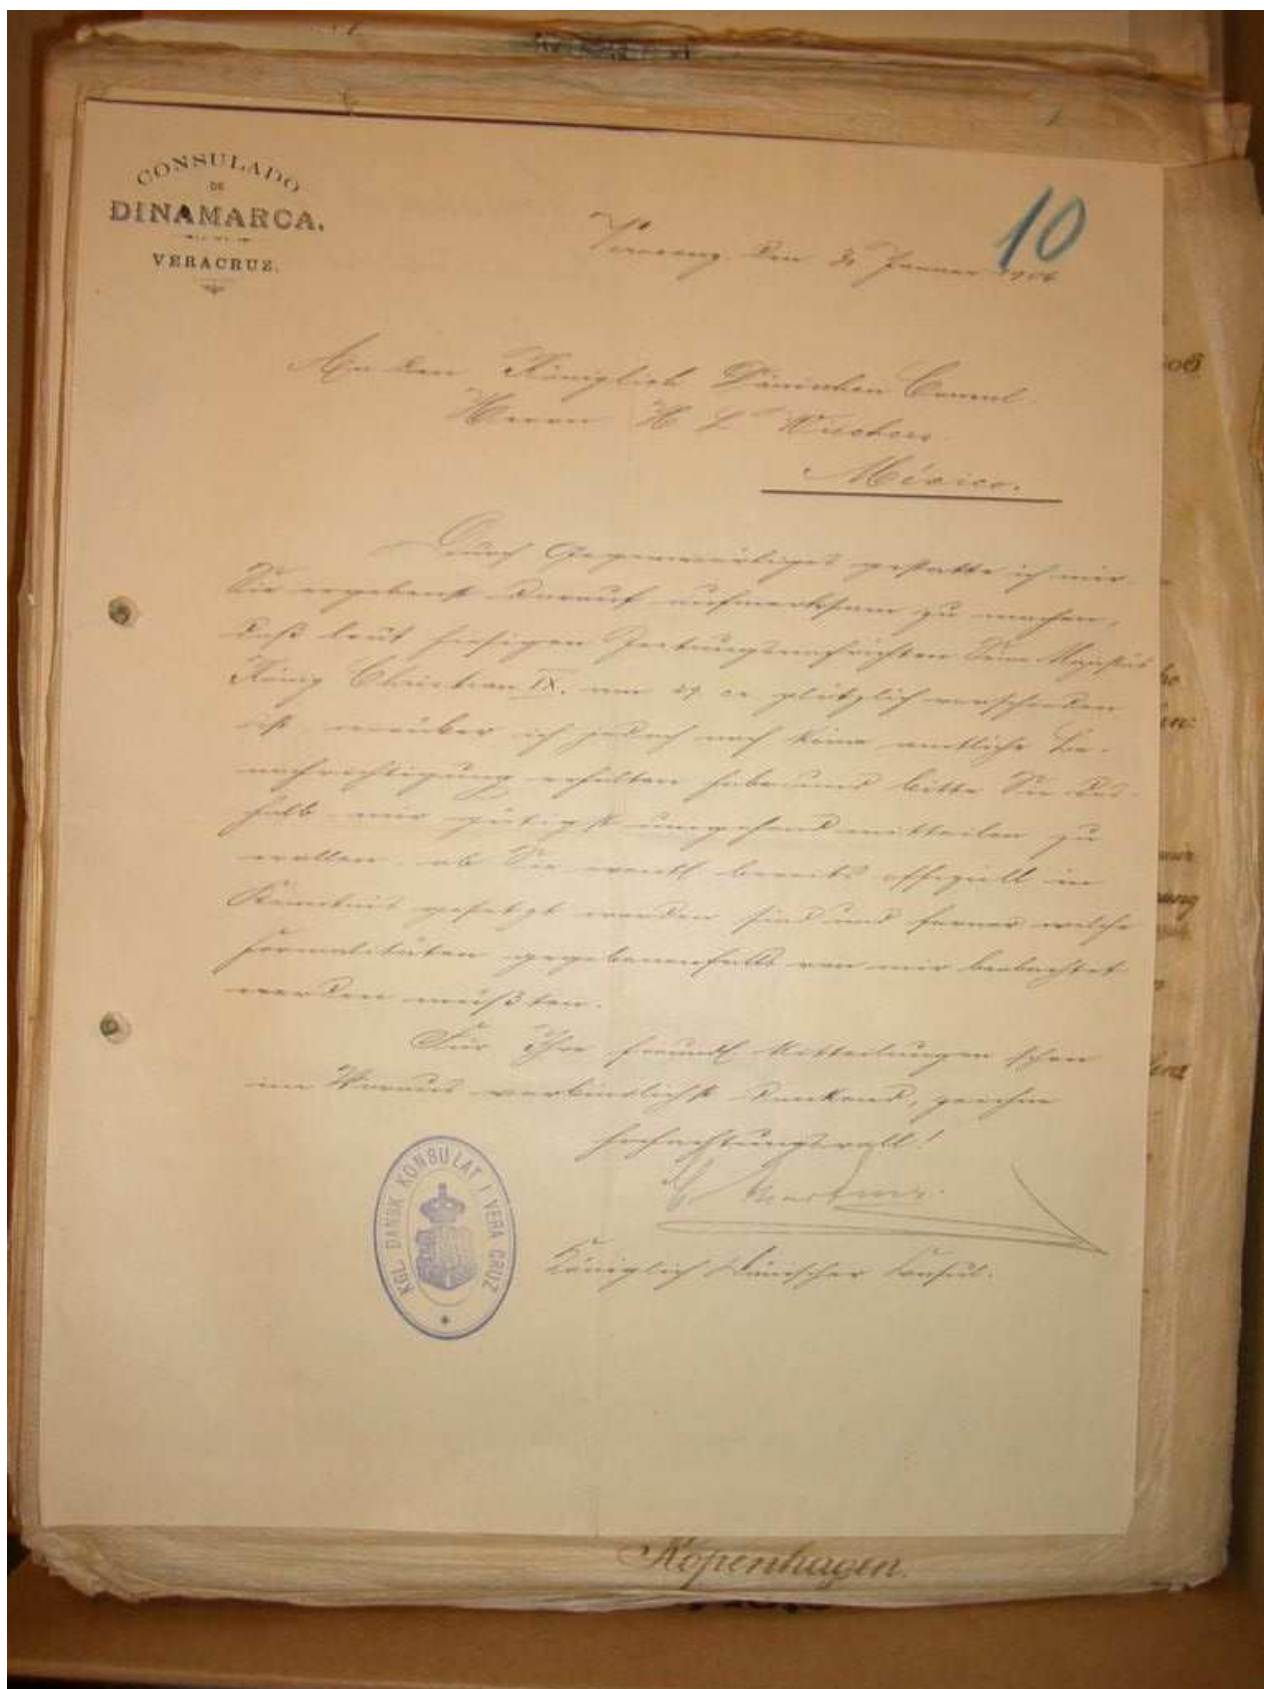 CONSULADO
DE
DINAMARCA.
VERACRUZ.
10
Veracruz, den 30 Januar 1906
An den Königlich Dänischen Consul
Herrn H L Wiechers
México.
Durch Gegenwärtiges gestatte ich mir
Sie ergebenst darauf aufmerksam zu machen,
daß laut hiesigen Zeitungsnachrichten Seine Majestät
König Christian IX. am 29 cr. plötzlich verschieden
ist, worüber ich jedoch noch keine amtliche Be-
nachrichtigung erhalten habe und bitte Sie des-
halb mir gütigst umgehend mitteilen zu
wollen, ob Sie eventl bereits offiziell in
Kenntnis gesetzt worden sind und ferner welche
Formalitäten gegebenenfalls von mir beobachtet
werden müßten.
Für Ihre freundl Mitteilungen schon
im Voraus verbindlichst dankend, zeichne
hochachtungsvoll!
Königlich Dänischer Consul.
KGL. DANSK KONSULAT I VERA CRUZ
Kopenhagen.